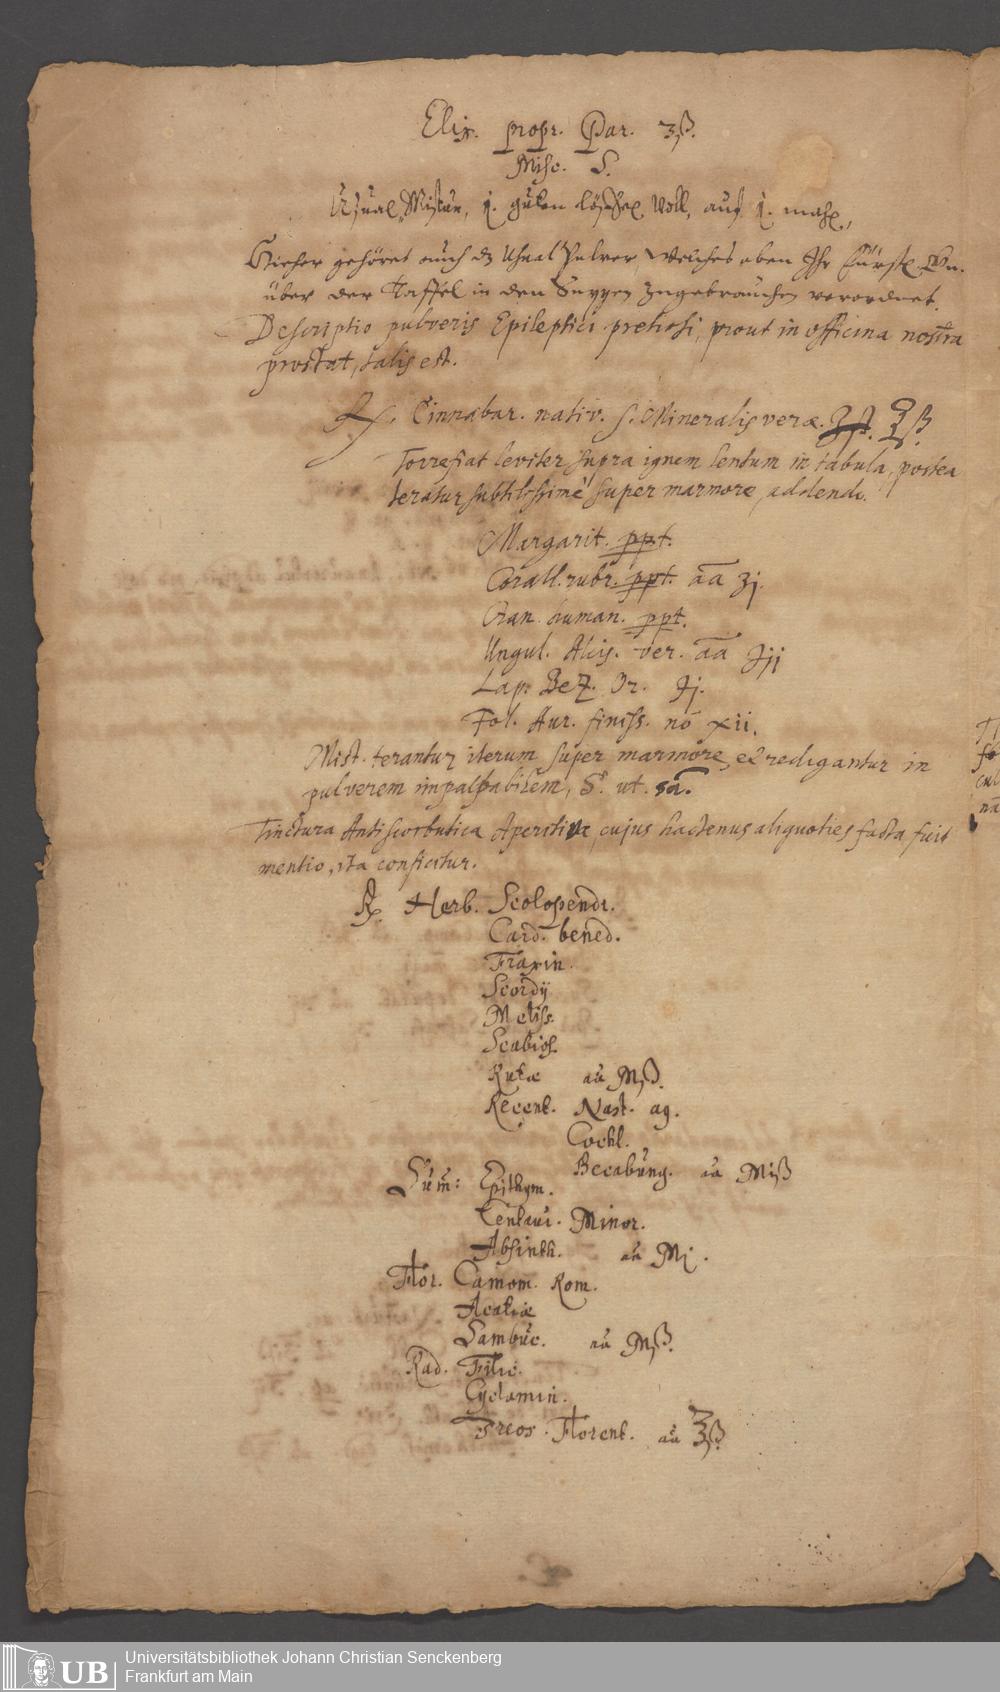 Elix. propr. Par. ʒß.
Misc. S.
Usual Mixtur, 1. guten Löffel voll, auf 1. mahl,
Hieher gehöret auch dz Usual Pulver, welches eben Ihr Fürstl. Gn.
über der Taffel in den Suppen zugebrauchen verordnet.
Descriptio pulveris Epileptici pretiosi, prout in officina nostra
prostat, talis est.
℞. Cinnabar. nativ. s. Mineralis veræ. ℥ß.
Torrefiat leviter supra ignem lentum in tabula, postea
teratur subtilissimè super marmore, addendo.
Margarit. ppt.
Corall. rubr. ppt. aa ʒj.
Cran. human. ppt.
Ungul. Alcis. ver. aa ℈ij
Lap. Bez. Or. ℈j.
Fol. Aur. finiss. no xii.
Mist. terantur iterum super marmore, et redigantur in
pulverem impalpabilem, S. ut. sa.
Tinctura Antiscorbutica Aperitiva, cujus hactenus aliquoties facta fuit
mentio, ita conficitur.
℞. Herb. Scolopendr.
Card. bened.
Fraxin.
Scordij
Meliss.
Scabios.
Rutæ aa Mß.
Recent. Nast. aq.
Cochl.
Becabung. aa Miß
Sum: Epithym.
Centaur. Minor.
Absinth. aa Mj.
Flor. Camom. Rom.
Acatiæ
Sambuc. aa Mß.
Rad. Filic.
Cyclamin.
Ireos. Florent. aa ℥ß.
UB
Universitätsbibliothek Johann Christian Senckenberg
Frankfurt am Main